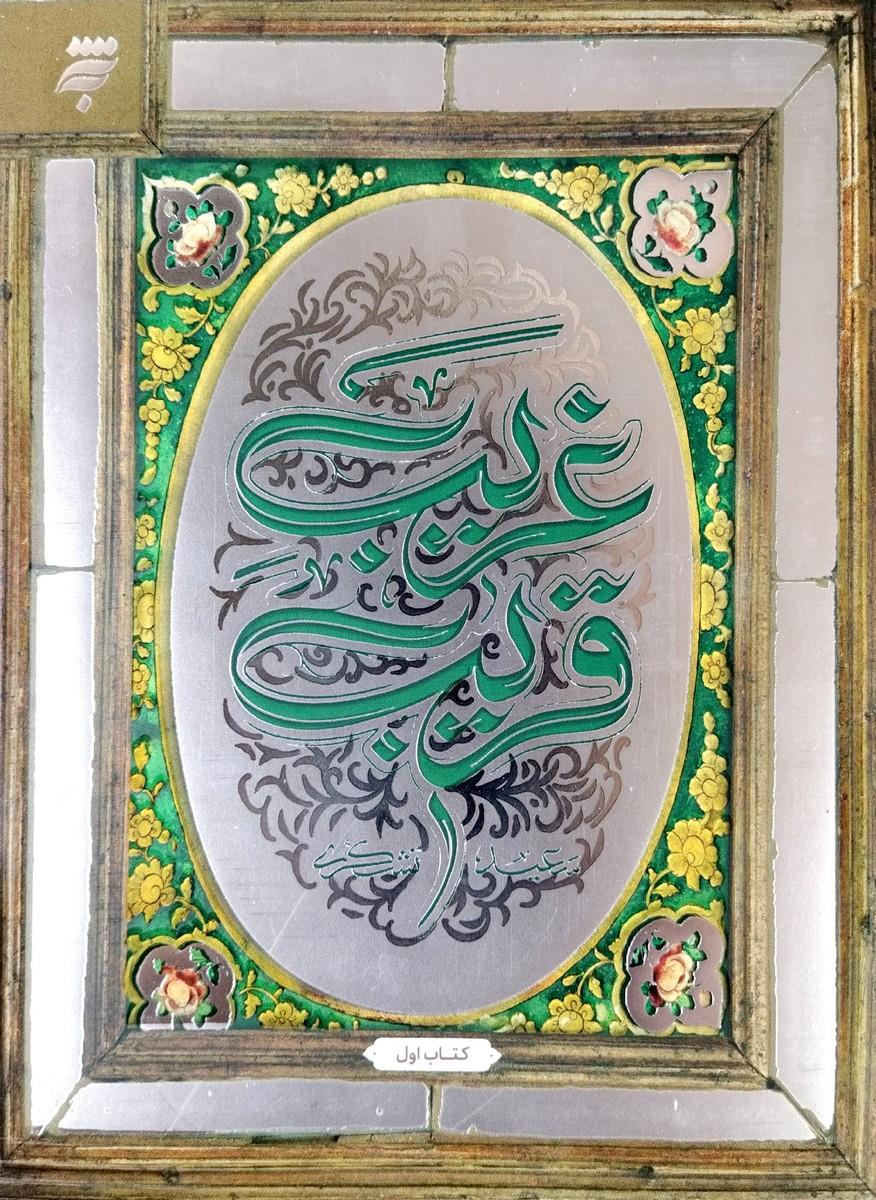 به نشر
غریب
قریب
سعید تشکری
کتاب اول